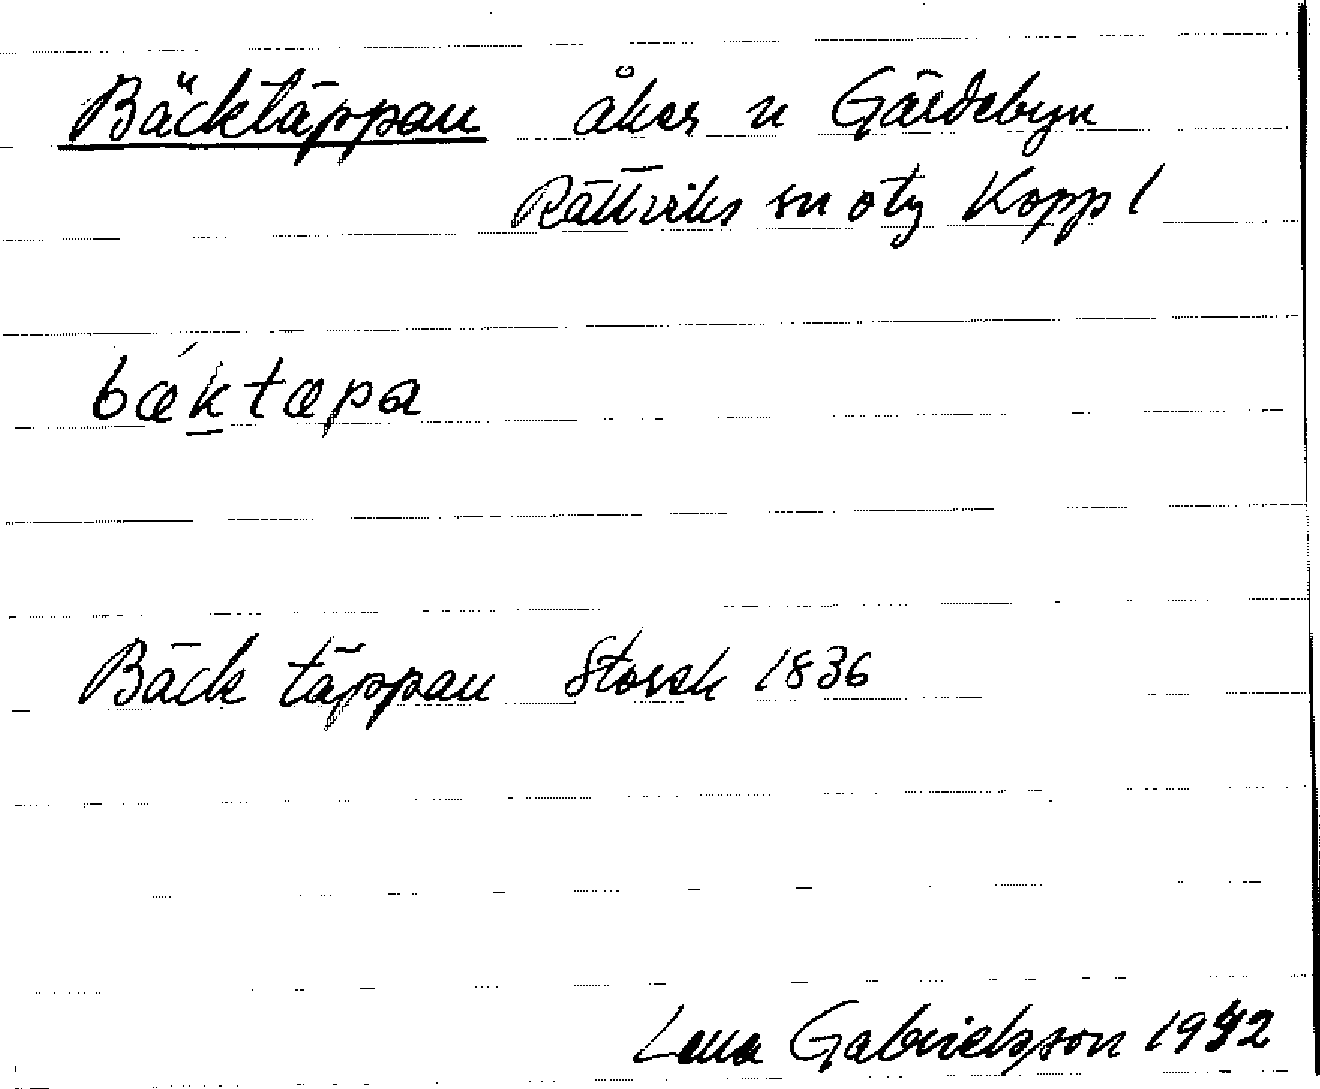 Bäcktäppan åker n Gärdebyn
Rättviks sn o tg Kopp l
bæ̀ktæpa
Bäck täppan Storsk 1836
Lena Gabrielsson 1942